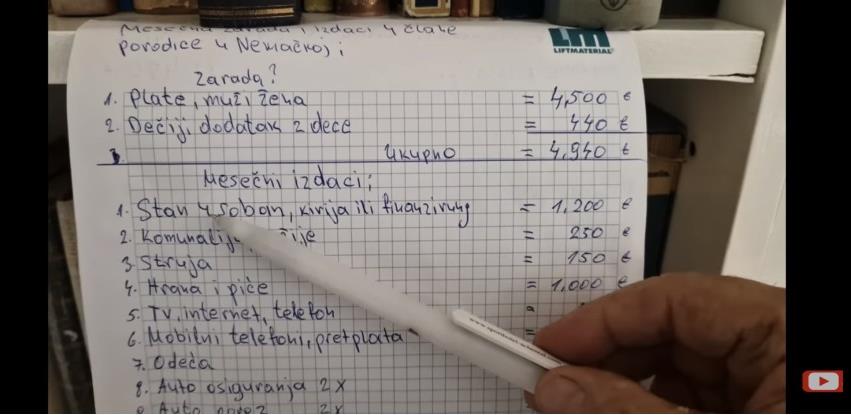 porodice u Nemačkoj;
LIFTMATERIAL
Zarada?
1. Plate, muž i žena = 4,500 €
2. Dečiji dodatak 2 dece = 440 €
3. Ukupno = 4.940 €
Mesečni izdaci;
1. Stan 4 soban, kirija ili finanzirung = 1.200 €
2. = 250 €
3. Struja = 150 €
4. Hrana i piće = 1.000 €
5. TV, internet, telefon =
6. Mobilni telefoni, pretplata =
7. Odeća
8. Auto osiguranja 2x
2x